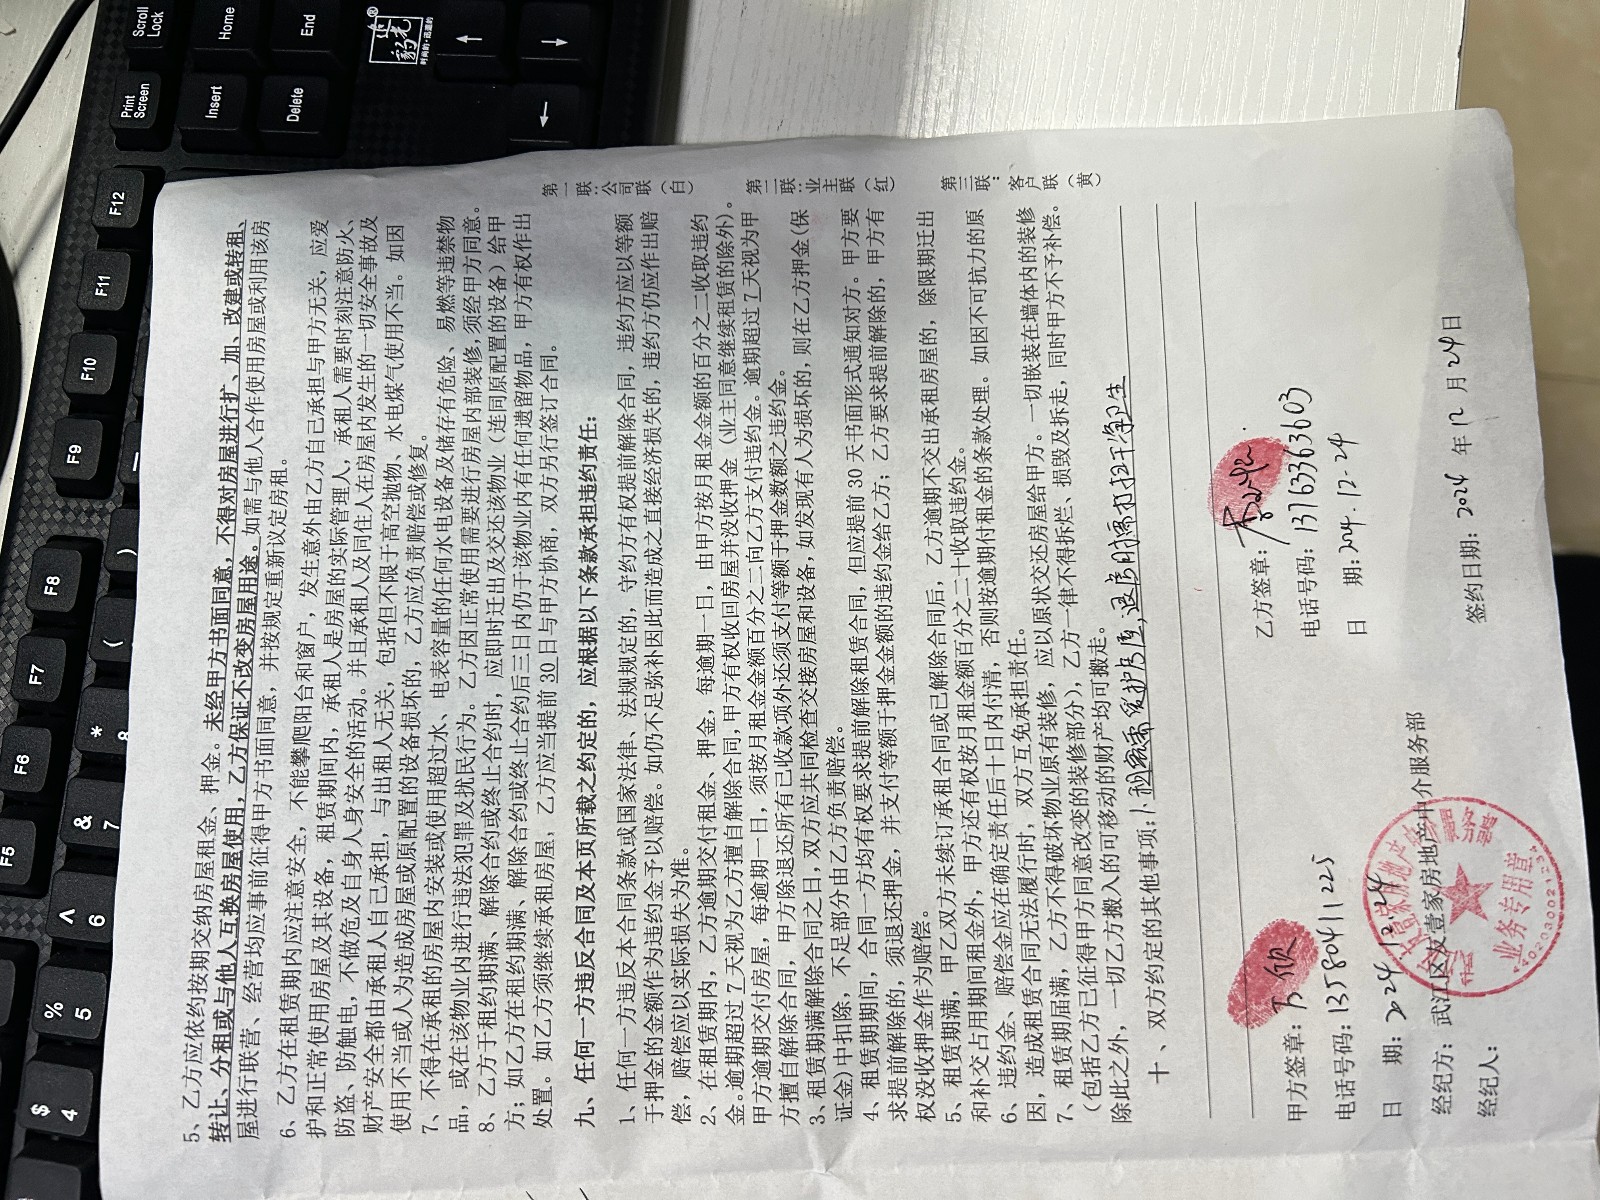 5、乙方应依约按期交纳房屋租金、押金。未经甲方书面同意，不得对房屋进行扩、加、改建或转租、
转让、分租或与他人互换房屋使用，乙方保证不改变房屋用途。如需与他人合作使用房屋或利用该房
屋进行联营、经营均应事前征得甲方书面同意，并按规定重新议定房租。
6、乙方在租赁期内应注意安全，不能攀爬阳台和窗户，发生意外由乙方自己承担与甲方无关，应爱
护和正常使用房屋及其设备，租赁期间内，承租人是房屋的实际管理人，承租人需要时刻注意防火、
防盗、防触电，不做危及自身人身安全的活动。并且承租人及同住人在房屋内发生的一切安全事故及
财产安全都由承租人自己承担，与出租人无关，包括但不限于高空抛物、水电煤气使用不当。如因
使用不当或人为造成房屋或原配置的设备损坏的，乙方应负责赔偿或修复。
7、不得在承租的房屋内安装或使用超过水、电表容量的任何水电设备及储存有危险、易燃等违禁物
品，或在该物业内进行违法犯罪及扰民行为。乙方因正常使用需要进行房屋内部装修，须经甲方同意。
8、乙方于租约期满、解除合约或终止合约时，应即时迁出及交还该物业（连同原配置的设备）给甲
方；如乙方在租约期满、解除合约或终止合约后三日内仍于该物业内有任何遗留物品，甲方有权作出
处置。如乙方须继续承租房屋，乙方应当提前 30 日与甲方协商，双方另行签订合同。
九、任何一方违反合同及本页所载之约定的，应根据以下条款承担违约责任：
1、任何一方违反本合同条款或国家法律、法规规定的，守约方有权提前解除合同，违约方应以等额
于押金的金额作为违约金予以赔偿。如仍不足弥补因此而造成之直接经济损失的，违约方仍应作出赔
偿，赔偿应以实际损失为准。
2、在租赁期内，乙方逾期交付租金、押金，每逾期一日，由甲方按月租金金额的百分之二收取违约
金。逾期超过 7 天视为乙方擅自解除合同，甲方有权收回房屋并没收押金（业主同意继续租赁的除外）。
甲方逾期交付房屋，每逾期一日，须按月租金金额百分之二向乙方支付违约金。逾期超过 7 天视为甲
方擅自解除合同，甲方除退还所有已收款项外还须支付等额于押金数额之违约金。
3、租赁期满解除合同之日，双方应共同检查交接房屋和设备，如发现有人为损坏的，则在乙方押金(保
证金)中扣除，不足部分由乙方负责赔偿。
4、租赁期期间，合同一方均有权要求提前解除租赁合同，但应提前 30 天书面形式通知对方。甲方要
求提前解除的，须退还押金，并支付等额于押金金额的违约金给乙方；乙方要求提前解除的，甲方有
权没收押金作为赔偿。
5、租赁期满，甲乙双方未续订承租合同或已解除合同后，乙方逾期不交出承租房屋的，除限期迁出
和补交占用期间租金外，甲方还有权按月租金额百分之二十收取违约金。
6、违约金、赔偿金应在确定责任后十日内付清，否则按逾期付租金的条款处理。如因不可抗力的原
因，造成租赁合同无法履行时，双方互免承担责任。
7、租赁期届满，乙方不得破坏物业原有装修，应以原状交还房屋给甲方。一切嵌装在墙体内的装修
（包括乙方已征得甲方同意改变的装修部分），乙方一律不得拆烂、损毁及拆走，同时甲方不予补偿。
除此之外，一切乙方搬入的可移动的财产均可搬走。
十、双方约定的其他事项：1、租客需爱护房屋，退房时需打扫干净卫生
第一联：公司联（白）
第二联：业主联（红）
第三联：客户联（黄）
甲方签章：
电话号码：13580411225
日 期：2024 12.24
乙方签章：
电话号码：13763363603
日 期：2024.12-24
经纪方：武江区友壹家房地产中介服务部
经纪人：
签约日期：2024 年 12 月 24 日
业务专用章
Scroll Lock
Home
End
Print Screen
Insert
Delete
追光豹
时尚的·迅速的
F12
F11
F10
F9
F8
F7
F6
F5
)
(
* 8
& 7
^ 6
% 5
$ 4